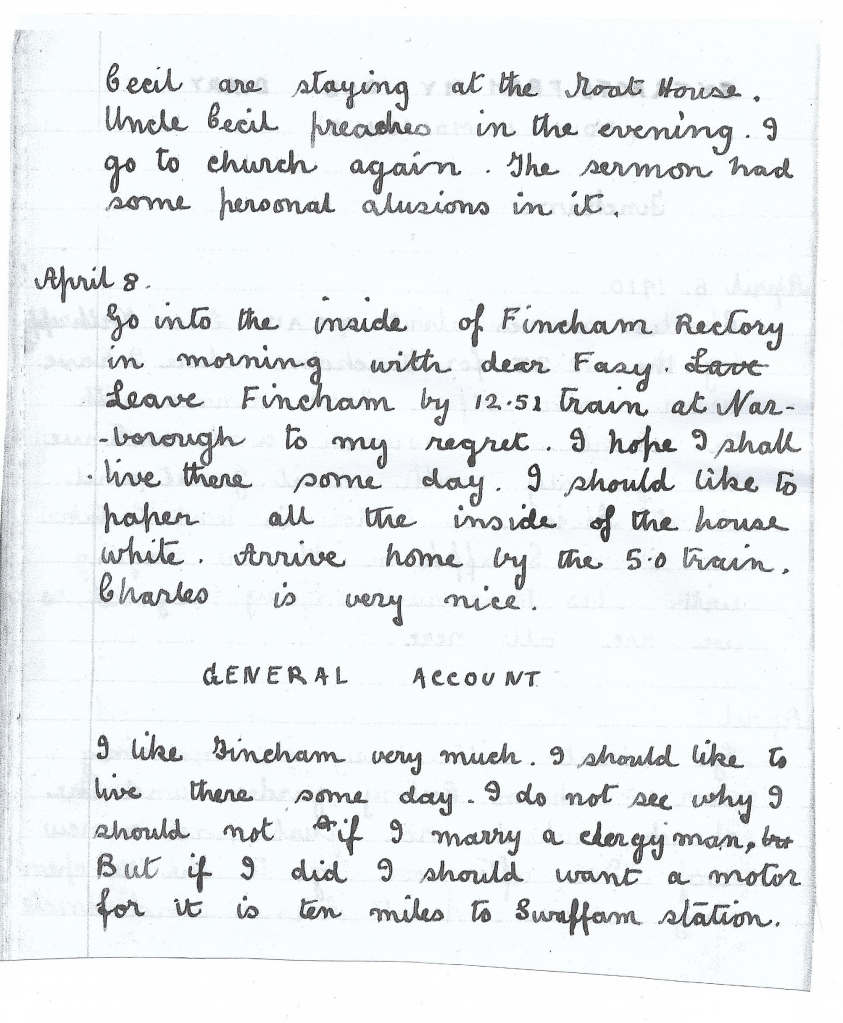 Cecil are staying at the Moat House.
Uncle Cecil preaches in the evening. I
go to church again. The sermon had
some personal alusions in it.
April 8.
Go into the inside of Fincham Rectory
in morning with dear Fasy. Lave
Leave Fincham by 12.51 train at Nar-
-borough to my regret. I hope I shall
live there some day. I should like to
paper all the inside of the house
white. Arrive home by the 5.0 train.
Charles is very nice.
GENERAL ACCOUNT
I like Fincham very much. I should like to
live there some day. I do not see why I
should not if I marry a clergyman, but
But if I did I should want a motor
for it is ten miles to Swaffam station.